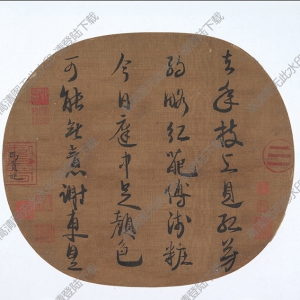 去年枝上見紅芳
約略紅葩傅淺糚
今日庭中足顏色
可能無意謝東皇